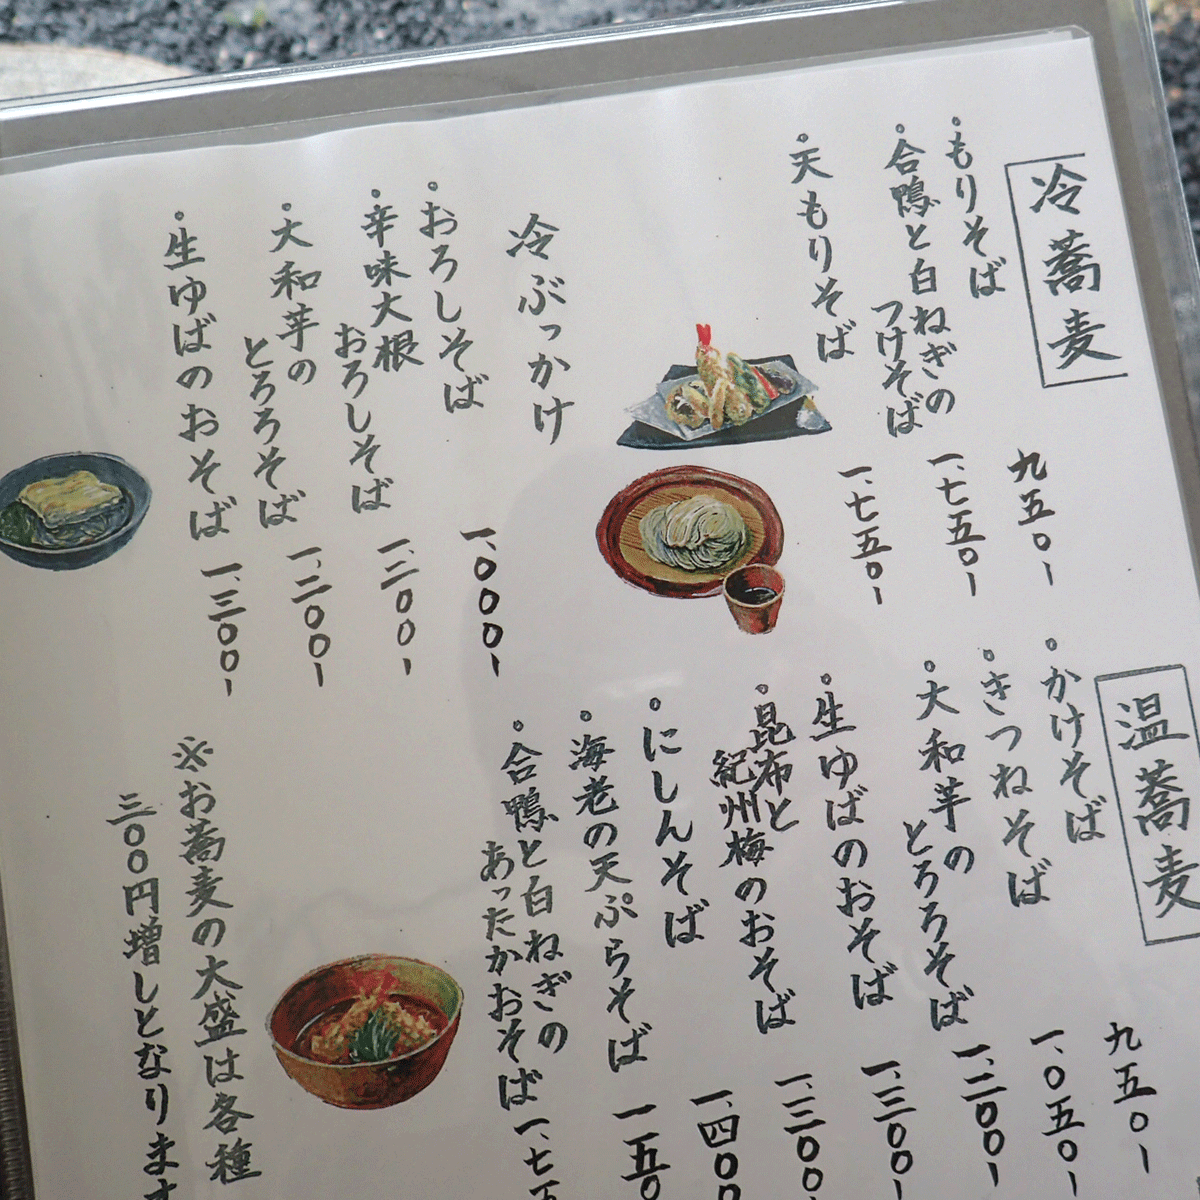 冷蕎麦
・もりそば 九五〇-
・合鴨と白ねぎの
つけそば 一、七五〇-
・天もりそば 一、七五〇-
冷ぶっかけ
・おろしそば 一、〇〇〇-
・辛味大根
おろしそば 一、二〇〇-
・大和芋の
とろろそば 一、二〇〇-
・生ゆばのおそば 一、三〇〇-
温蕎麦
・かけそば 九五〇-
・きつねそば 一、〇五〇-
・大和芋の
とろろそば 一、二〇〇-
・生ゆばのおそば 一、三〇〇-
・昆布と
紀州梅のおそば 一、三〇〇-
・にしんそば 一、四〇〇
・海老の天ぷらそば 一五〇
・合鴨と白ねぎの
あったかおそば 一、七五
※お蕎麦の大盛は各種
三〇〇円増しとなります